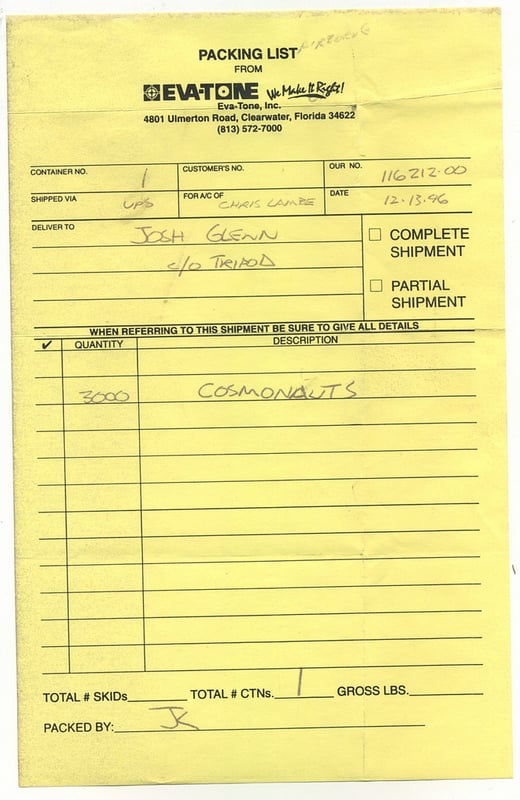 PACKING LIST
FROM
EVA-TONE We Make It Right!
Eva-Tone, Inc.
4801 Ulmerton Road, Clearwater, Florida 34622
(813) 572-7000
CONTAINER NO. 1 CUSTOMER'S NO. OUR NO. 116212.00
SHIPPED VIA UPS FOR A/C OF CHRIS LAMBE DATE 12.13.96
DELIVER TO JOSH GLENN
c/o TRIPOD
COMPLETE SHIPMENT
PARTIAL SHIPMENT
WHEN REFERRING TO THIS SHIPMENT BE SURE TO GIVE ALL DETAILS
✓ QUANTITY DESCRIPTION
3000 COSMONAUTS
TOTAL # SKIDs TOTAL # CTNs. 1 GROSS LBS.
PACKED BY: JK